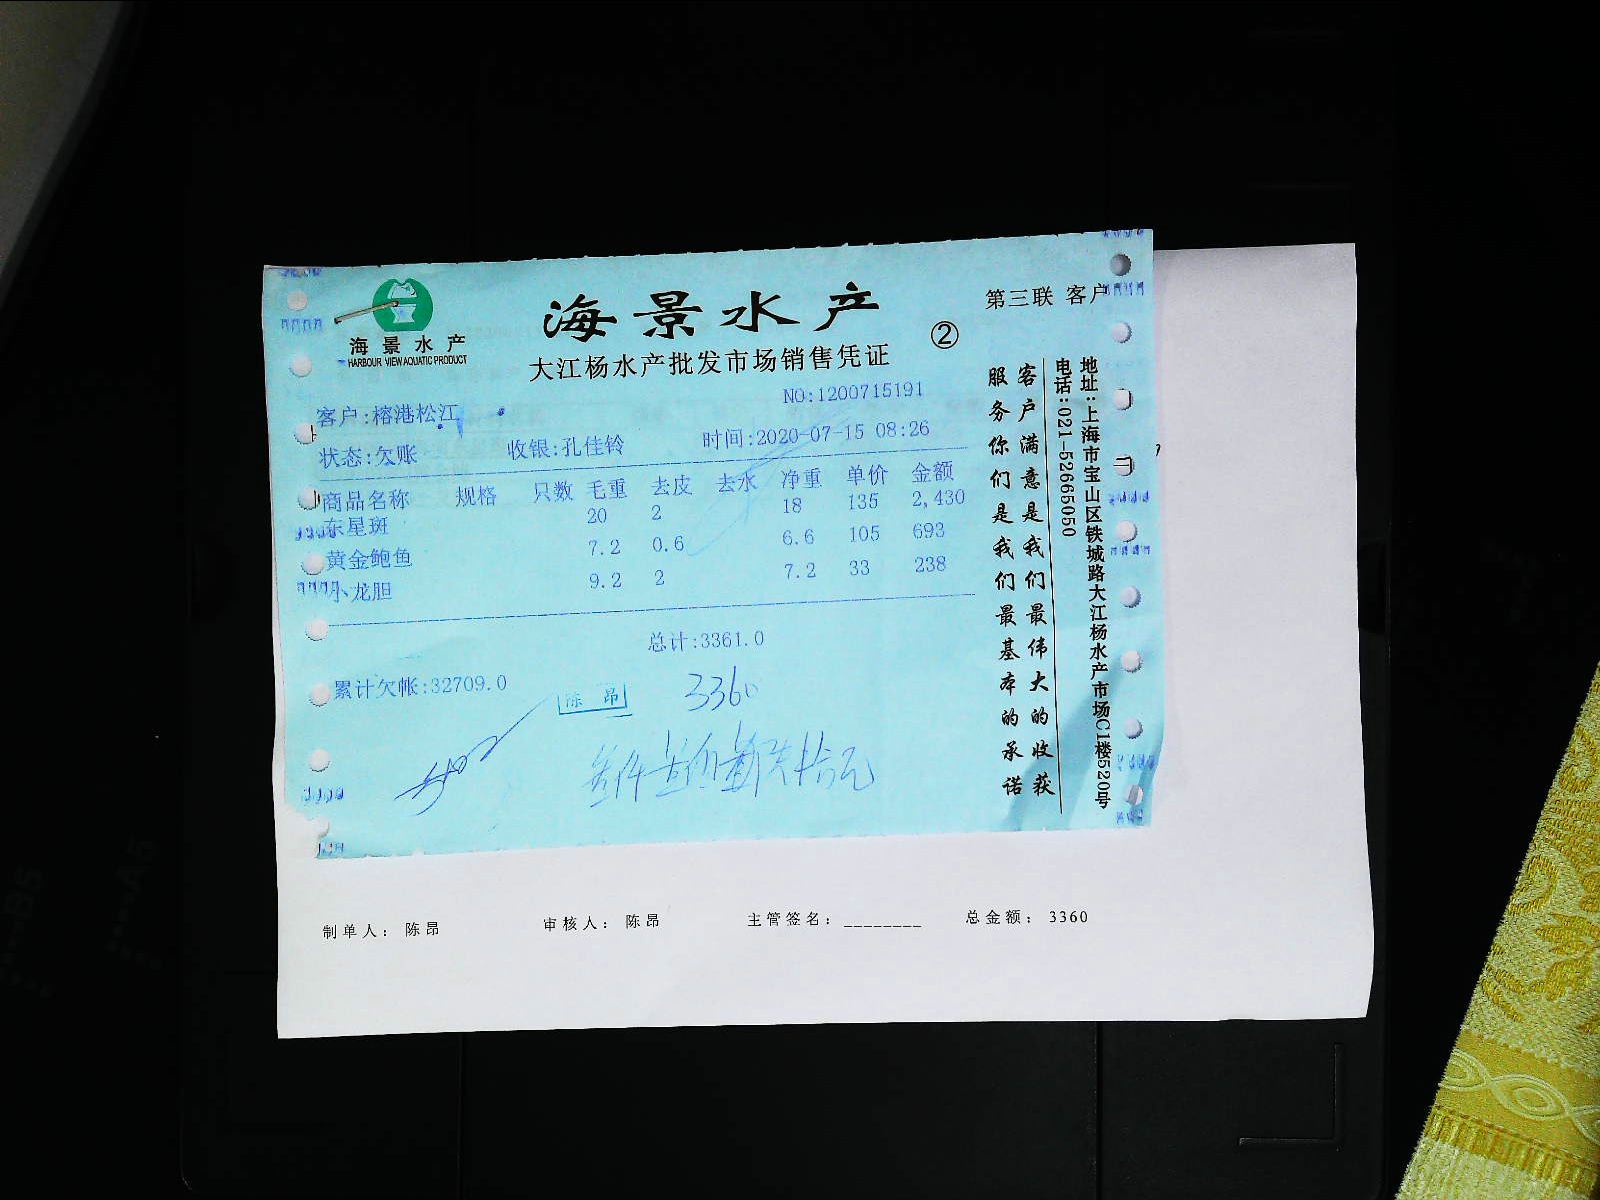 海景水产
HARBOUR VIEW AQUATIC PRODUCT
海景水产
大江杨水产批发市场销售凭证
②
第三联 客户
NO:1200715191
客户:榕港松江
状态:欠账 收银:孔佳铃 时间:2020-07-15 08:26
商品名称 规格 只数 毛重 去皮 去水 净重 单价 金额
东星斑 20 2 18 135 2,430
黄金鲍鱼 7.2 0.6 6.6 105 693
小龙胆 9.2 2 7.2 33 238
总计:3361.0
累计欠帐:32709.0
陈昂
3360
客户满意是我们最伟大的收获
服务你们是我们最基本的承诺
地址:上海市宝山区铁城路大江杨水产市场C1楼520号
电话:021-52665050
制单人: 陈昂 审核人: 陈昂 主管签名:________ 总金额: 3360